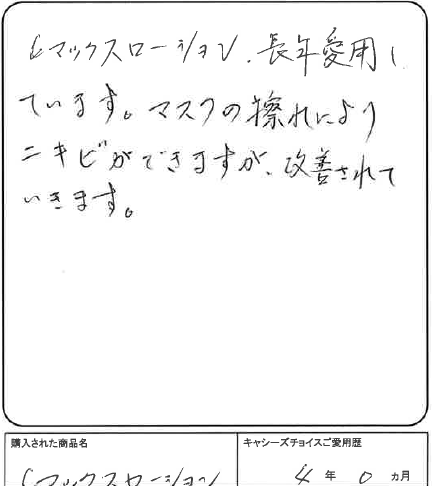 Cマックスローション、長年愛用し
ています。マスクの擦れにより
ニキビができますが、改善されて
いきます。
購入された商品名
キャシーズチョイスご愛用歴
Cマックスローション
4年0ヵ月